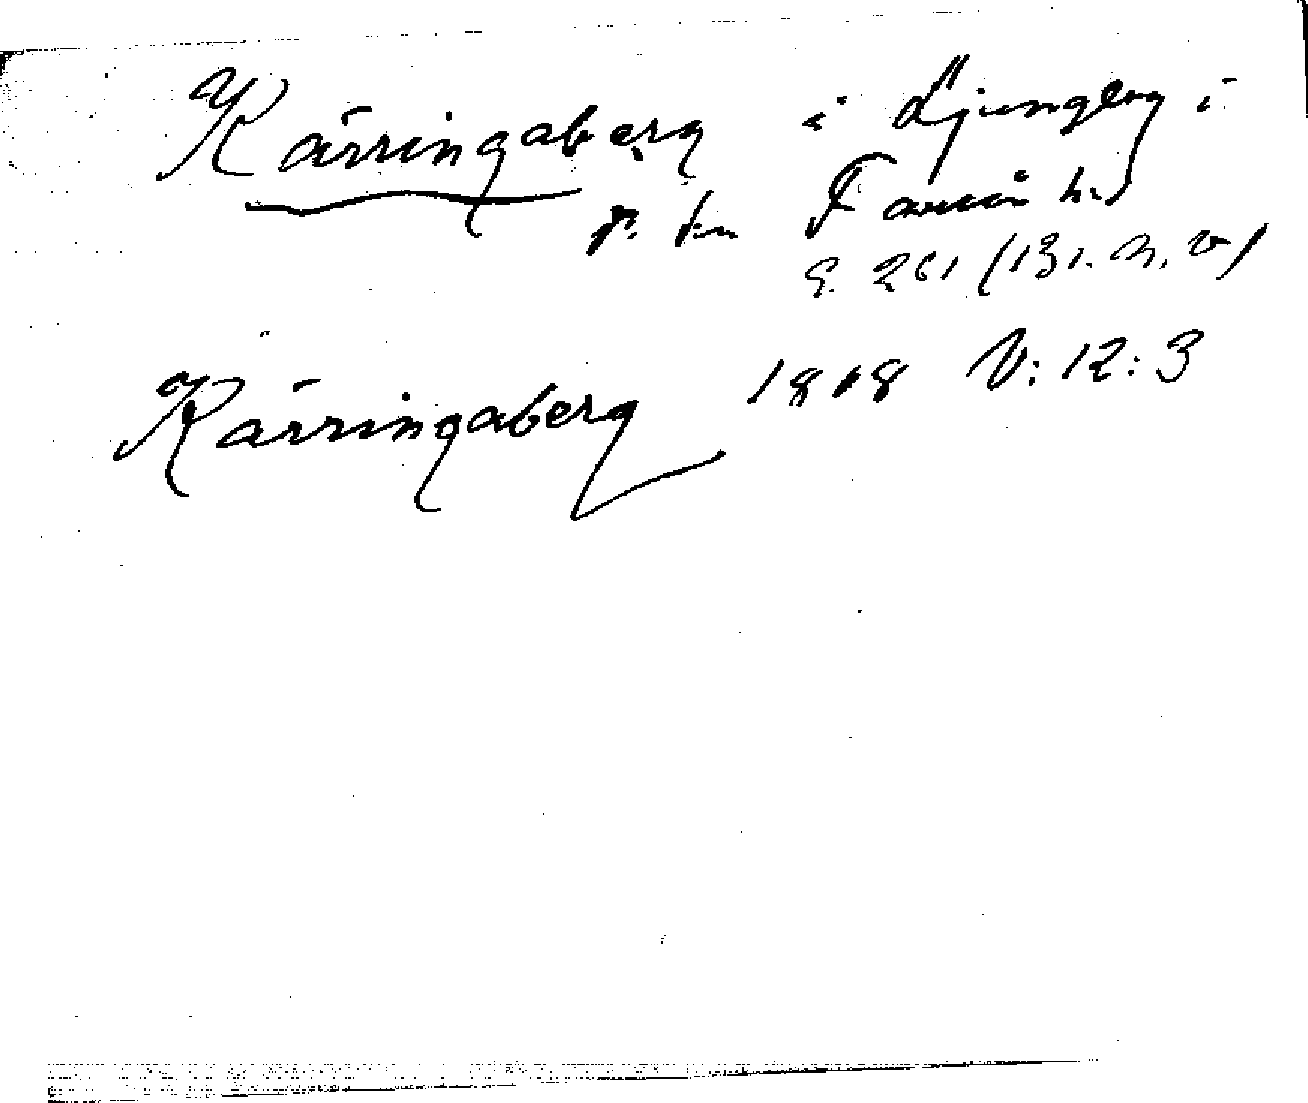 Käringaberg i Ljungby i
Faurås hd
S. 261 (131. N. V)
Käringaberg 1808 V: 12: 3